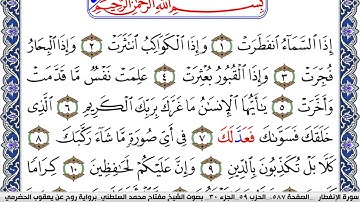 بِسْمِ اللَّهِ الرَّحْمَٰنِ الرَّحِيمِ
إِذَا السَّمَاءُ انفَطَرَتْ ١ وَإِذَا الْكَوَاكِبُ انتَثَرَتْ ٢ وَإِذَا الْبِحَارُ
فُجِّرَتْ ٣ وَإِذَا الْقُبُورُ بُعْثِرَتْ ٤ عَلِمَتْ نَفْسٌ مَّا قَدَّمَتْ
وَأَخَّرَتْ ٥ يَٰأَيُّهَا الْإِنسَٰنُ مَا غَرَّكَ بِرَبِّكَ الْكَرِيمِ ٦ الَّذِي
خَلَقَكَ فَسَوَّىٰكَ فَعَدَّلَكَ ٧ فِي أَيِّ صُورَةٍ مَّا شَاءَ رَكَّبَكَ ٨
كَلَّا بَلْ تُكَذِّبُونَ بِالدِّينِ ٩ وَإِنَّ عَلَيْكُمْ لَحَٰفِظِينَ ١٠ كِرَامًا
سورة الإنفطار الصفحة ٥٨٧ الحزب ٥٩ الجزء ٣٠ بصوت الشيخ مفتاح محمد السلطني برواية روح عن يعقوب الحضرمي